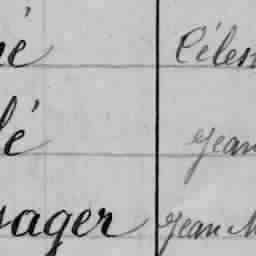 né Céles
lé Jean
sager Jean M